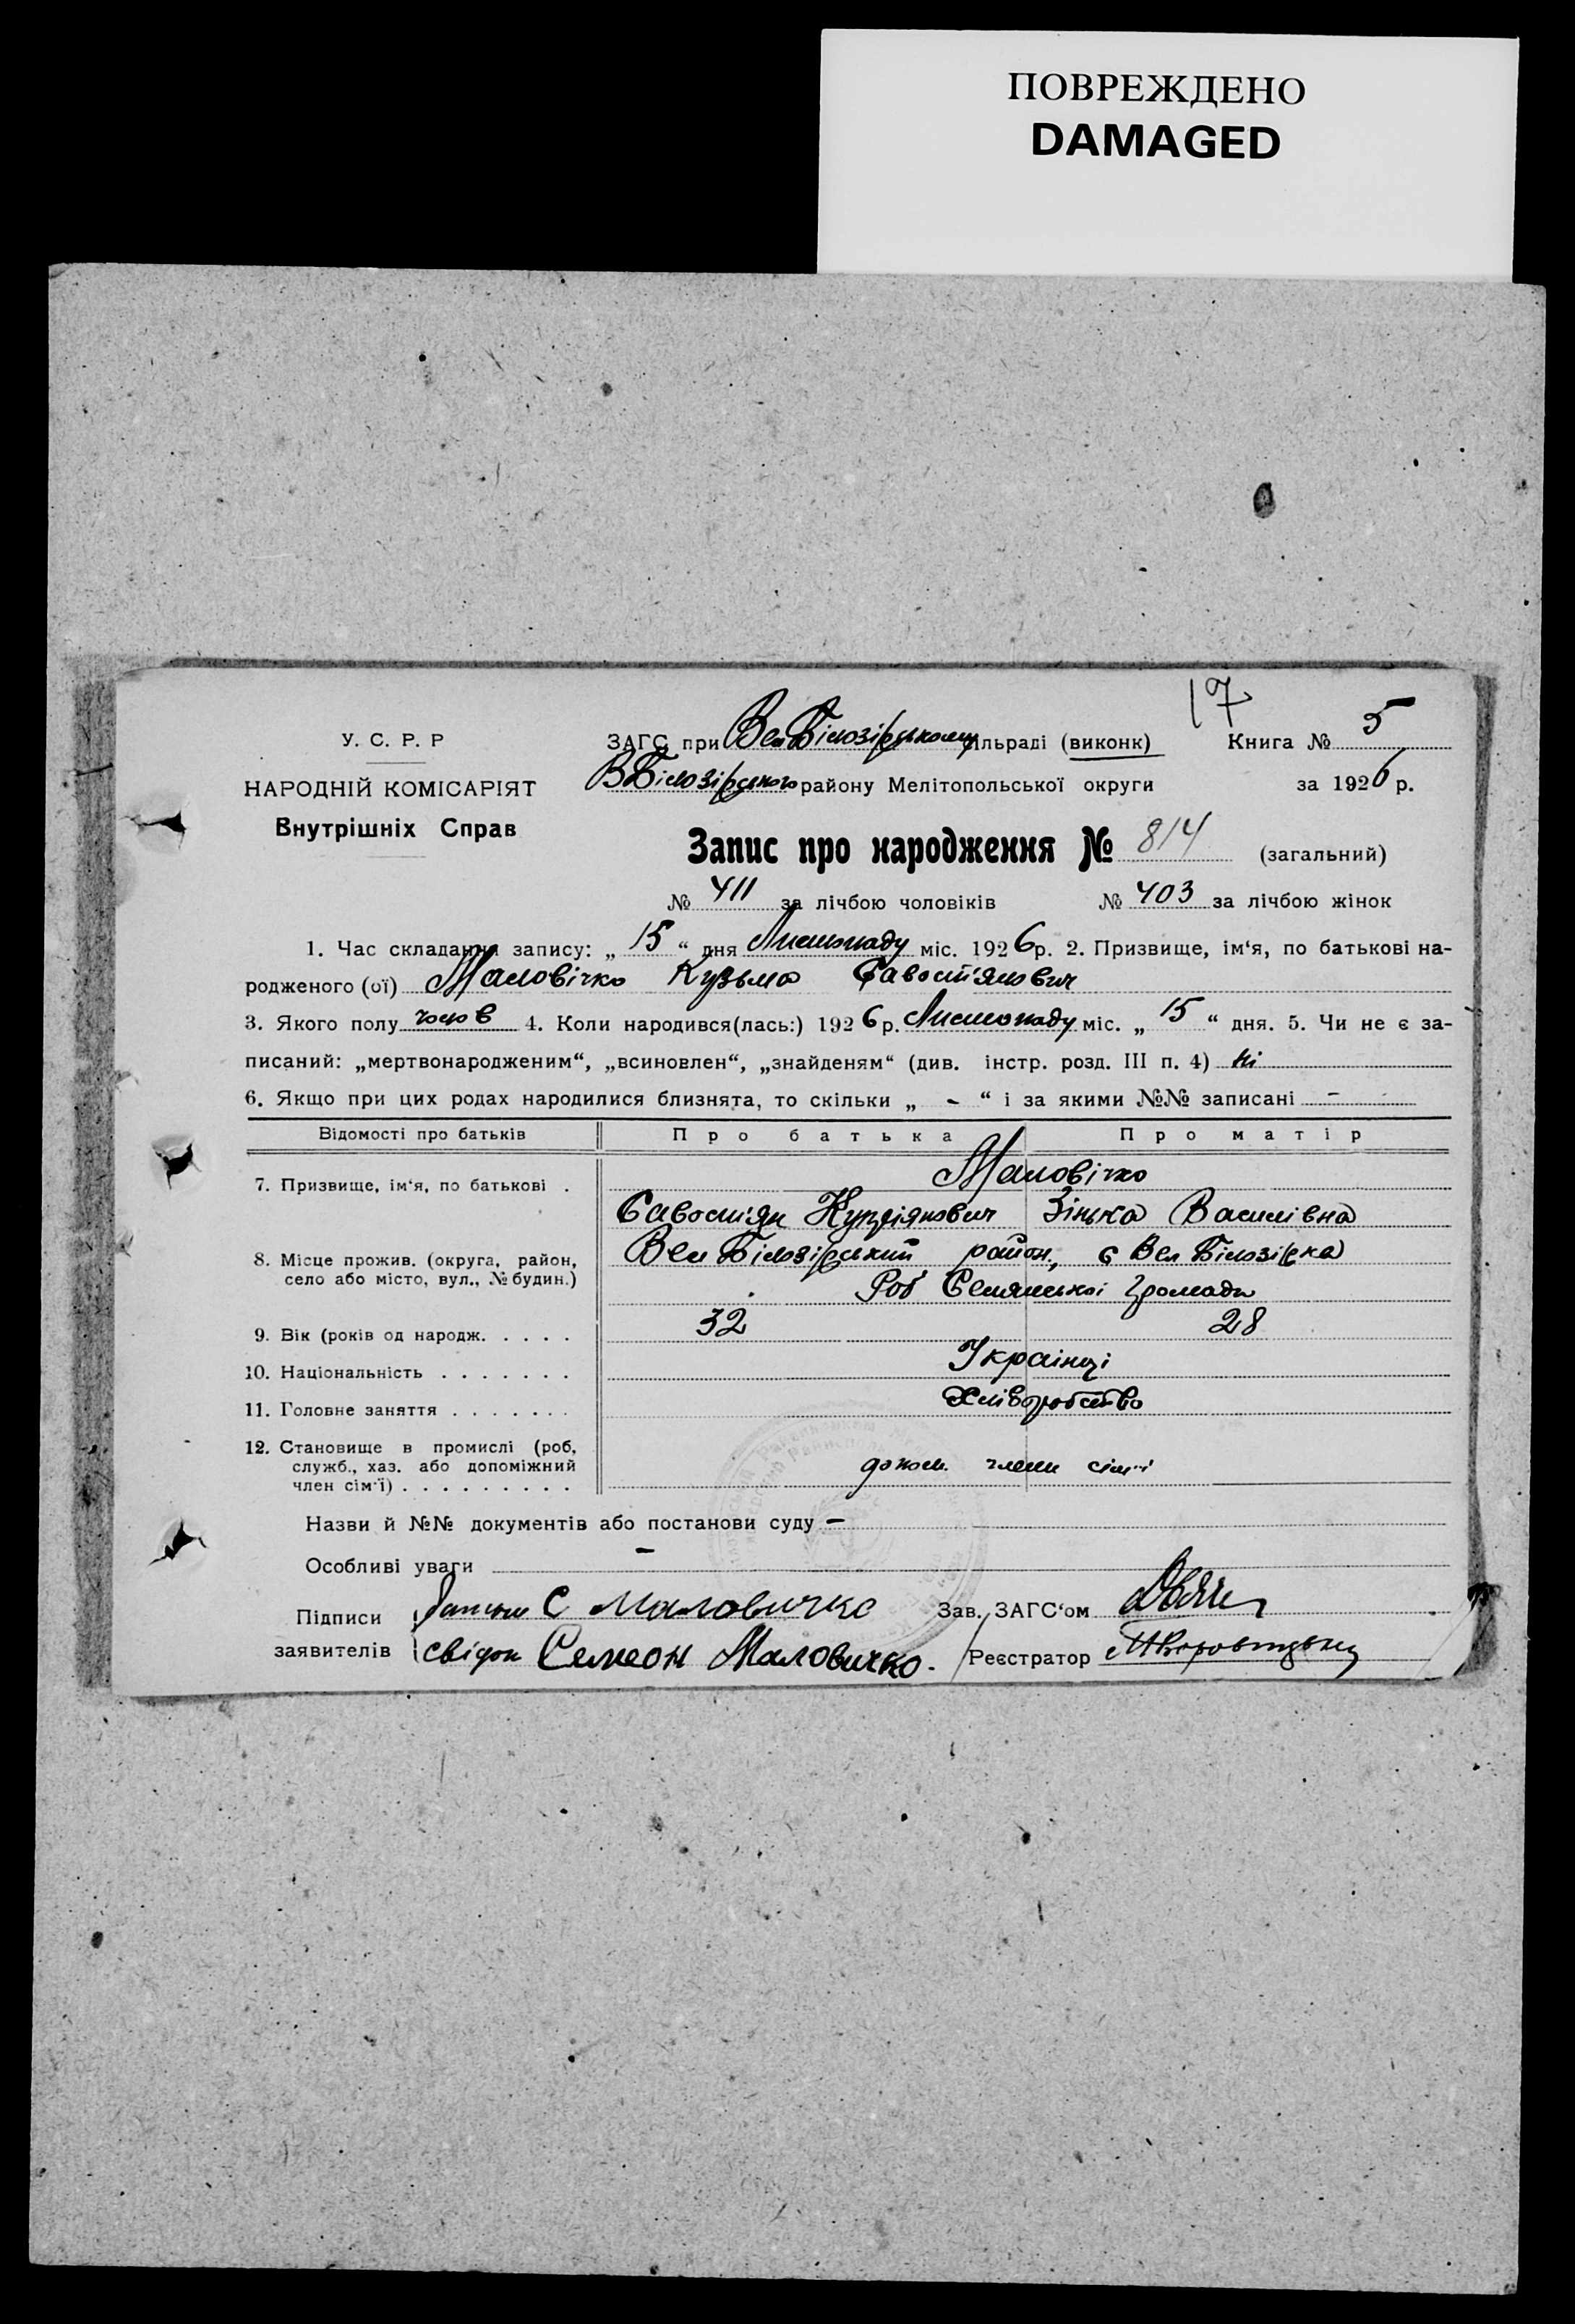 ПОВРЕЖДЕНО
DAMAGED
17
У. С. Р. Р
НАРОДНІЙ КОМІСАРІЯТ
Внутрішніх Справ
ЗАГС при Вел Білозірському сільраді (виконк) Книга № 5
В Білозірського району Мелітопольської округи за 1926 р.
Запис про народження № 814 (загальний)
№ 411 за лічбою чоловіків № 403 за лічбою жінок
1. Час складання запису: „ 15 “ дня Листопаду міс. 1926 р. 2. Призвище, ім‘я, по батькові на-
родженого (ої) Маловічко Кузьма Савостіянович
3. Якого полу чолов 4. Коли народився(лась:) 1926 р. Листопаду міс. „ 15 “ дня. 5. Чи не є за-
писаний: „мертвонародженим“, „всиновлен“, „знайденям“ (див. інстр. розд. III п. 4) ні
6. Якщо при цих родах народилися близнята, то скільки „ - “ і за якими №№ записані -
Відомості про батьків Про батька Про матір
7. Призвище, ім‘я, по батькові . Маловічко
Савостіян Купріянович Зінька Василівна
8. Місце прожив. (округа, район, село або місто, вул., № будин.) Вел Білозірський район, с Вел Білозірка
Роб Селянської громади
9. Вік (років од народж. . . . . 32 28
10. Національність . . . . . . . Українці
11. Головне заняття . . . . . . . Хліборобство
12. Становище в промислі (роб,
служб., хаз. або допоміжний
член сім‘ї) . . . . . . . . . допом. члени сім'ї
Назви й №№ документів або постанови суду —
Особливі уваги —
Підписи батько С Маловичко Зав. ЗАГС‘ом
заявителів свідок Семеон Маловичко. Реєстратор